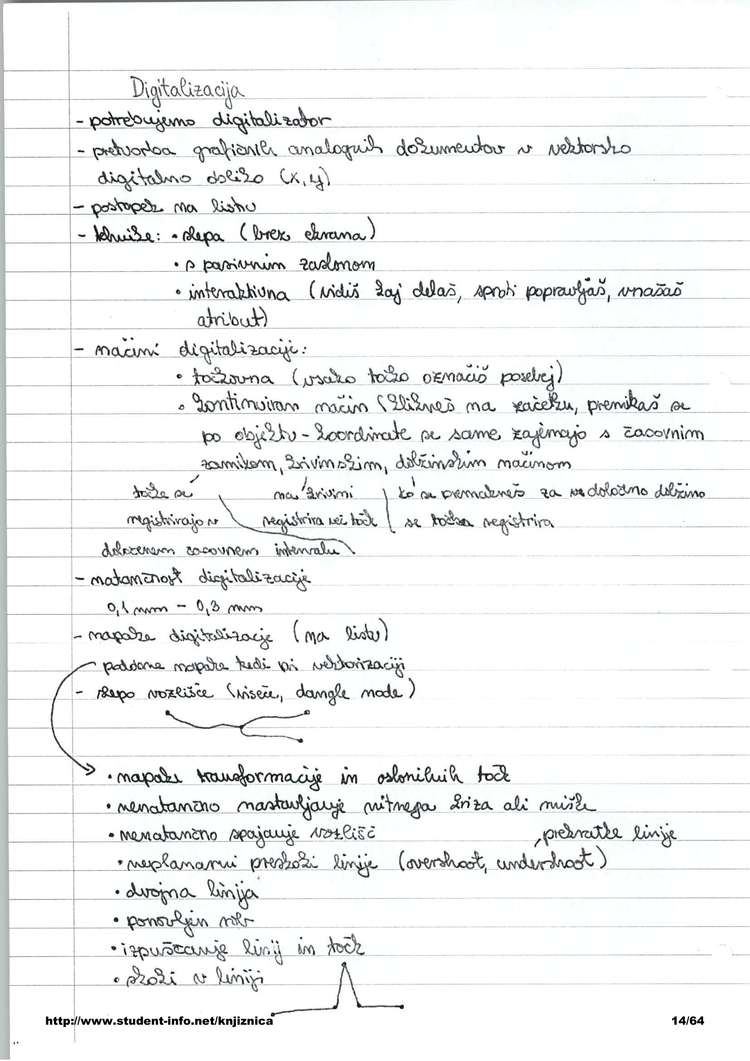 Digitalizacija
- potrebujemo digitalizator
- pretvorba grafičnih analognih dokumentov v vektorsko
digitalno obliko (x,y)
- postopek na listu
- tehnike: • slepa (brez ekrana)
• s pasivnim zaslonom
• interaktivna (vidiš kaj delaš, sproti popravljaš, vnašaš
atribut)
- načini digitalizacije:
• točkovna (vsako točko označiš posebej)
• kontinuiran način (klikneš na začetku, premikaš se
po objektu - koordinate se same zajemajo s časovnim
zamikom, krivinskim, dolžinskim načinom
točke se
registrirajo v
določenem časovnem intervalu
na krivini
registrira več točk
ko se premakneš za določeno dolžino
se točka registrira
- natančnost digitalizacije
0,1 mm - 0,3 mm
- napake digitalizacije (na listu)
podobne napake tudi pri vektorizaciji
- slepo vozlišče (viseče, dangle node)
• napake transformacije in oslonilnih točk
• nenatančno nastavljanje nitnega križa ali miške
• nenatančno spajanje vozlišč
, prekratke linije
• neplanarni preskoki linije (overshoot, undershoot)
• dvojna linija
• ponovljen rob
• izpuščanje linij in točk
• skoki v liniji
http://www.student-info.net/knjiznica
14/64